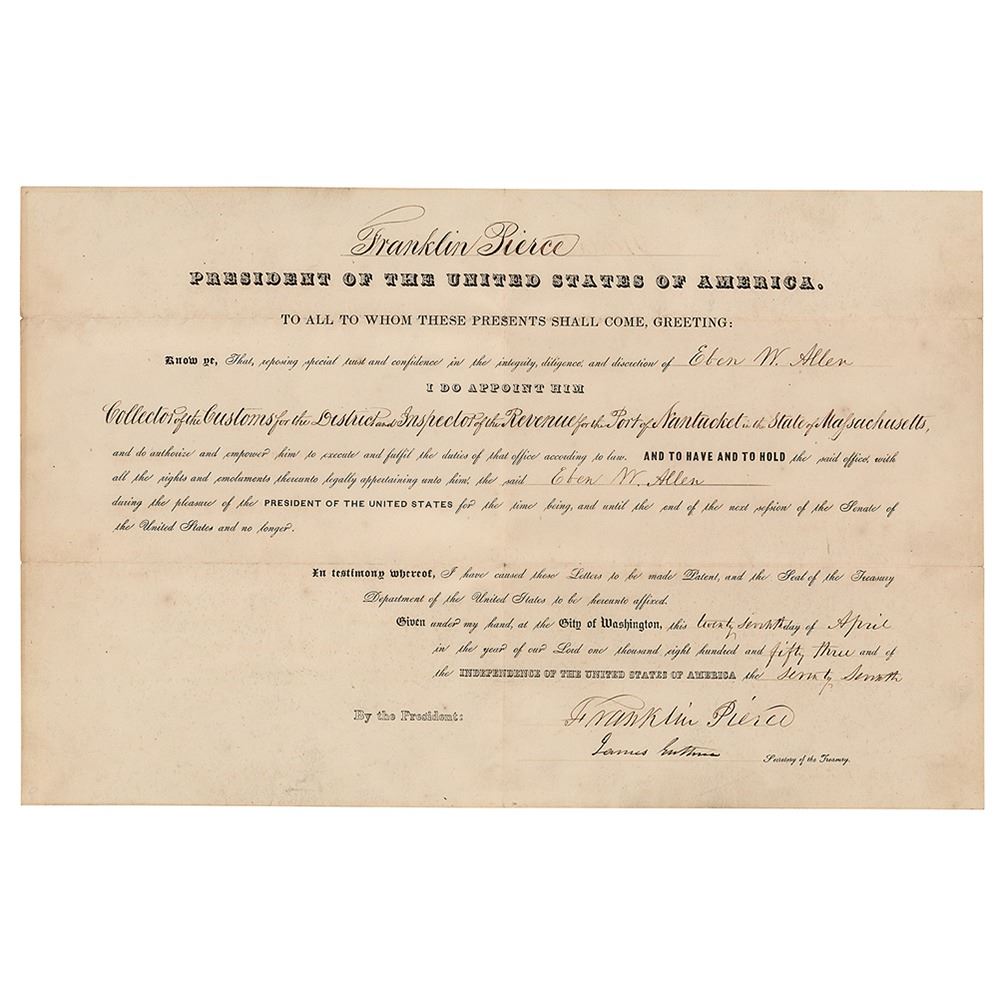 Franklin Pierce
PRESIDENT OF THE UNITED STATES OF AMERICA.
TO ALL TO WHOM THESE PRESENTS SHALL COME, GREETING:
Know ye, That, reposing special trust and confidence in the integrity, diligence, and discretion of Eben W. Allen
I DO APPOINT HIM
Collector of the Customs for the District and Inspector of the Revenue for the Port of Nantucket in the State of Massachusetts,
and do authorize and empower him to execute and fulfil the duties of that office according to law. AND TO HAVE AND TO HOLD the said office, with
all the rights and emoluments thereunto legally appertaining unto him, the said Eben W. Allen
during the pleasure of the PRESIDENT OF THE UNITED STATES for the time being, and until the end of the next session of the Senate of
the United States and no longer.
In testimony whereof, I have caused these Letters to be made Patent, and the Seal of the Treasury
Department of the United States to be hereunto affixed.
Given under my hand, at the City of Washington, this twenty seventh day of April
in the year of our Lord one thousand eight hundred and fifty three and of
the INDEPENDENCE OF THE UNITED STATES OF AMERICA the Seventy Seventh
By the President: Franklin Pierce
James Guthrie Secretary of the Treasury.